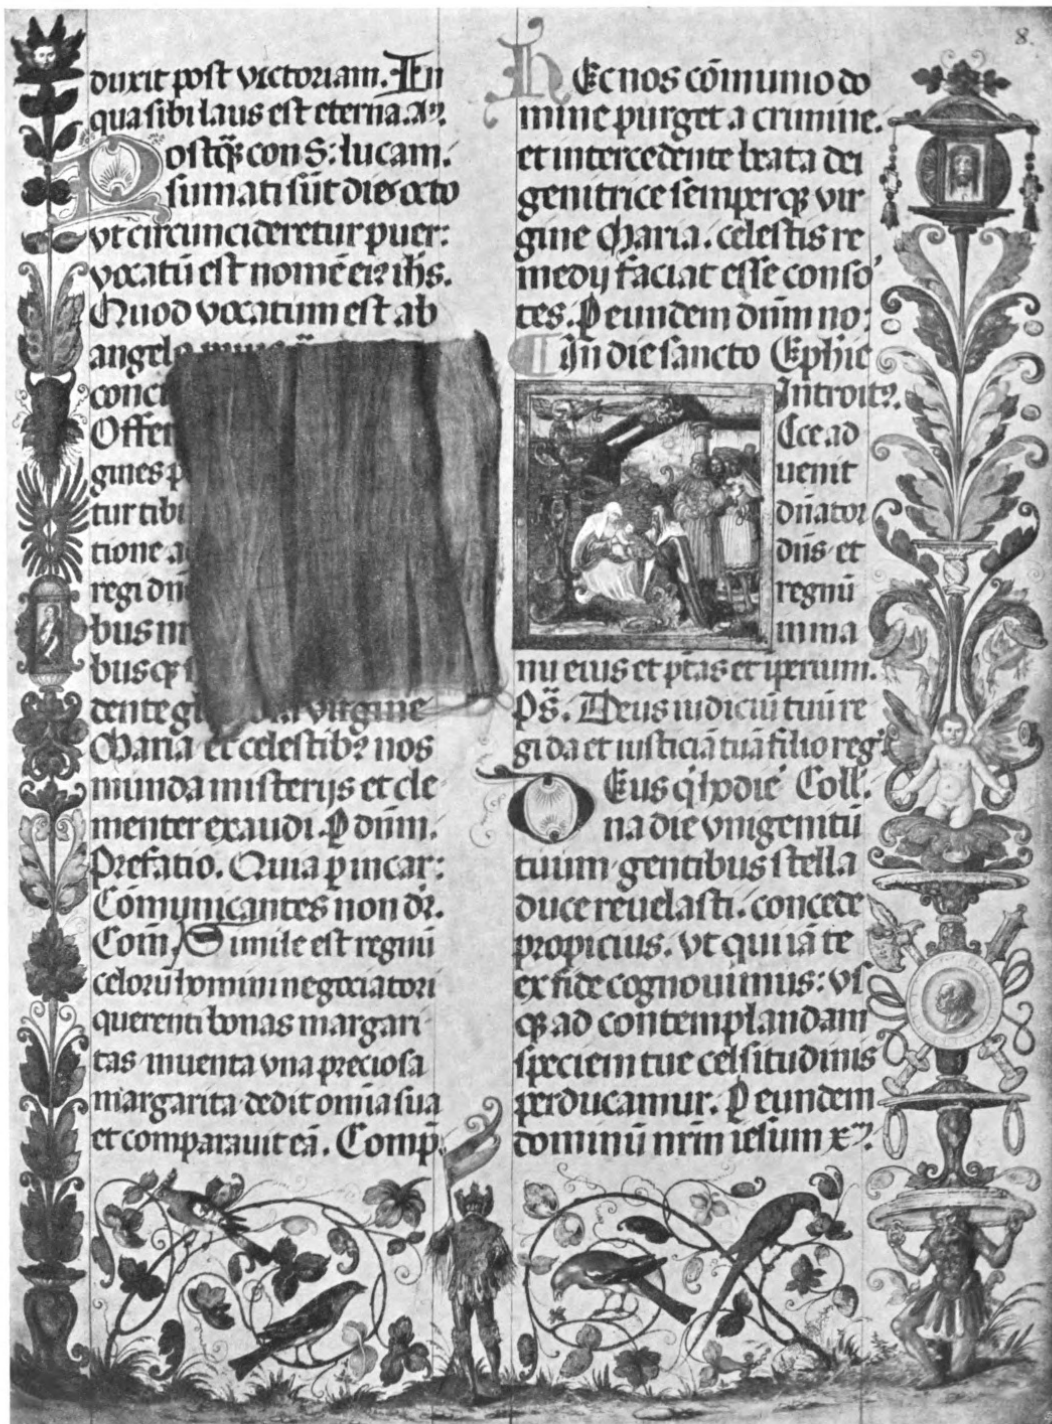 8.
duxit post victoriam. In
qua sibi laus est eterna. a⁊.
Postq̄ȝ con S: lucam.
sumati sūt dies octo
vt circuncideretur puer:
vocatū est nomē eiꝰ ih̄s.
Quod vocatum est ab
angelo
conci
Offer
gines p
tur tibi
tione a
regi dn
bus m
busq̄ȝ
dente virgine
Maria et celestibꝰ nos
munda misterijs et cle
menter exaudi. P̱ dūm.
Prefatio. Quia ꝑ incar:
Cōmunicantes non dr̄.
Com̄. Simile est regnū
celorū homini negociatori
querenti bonas margari
tas inuenta vna preciosa
margarita dedit omīa sua
et comparauit eā. Comp̄.
HEc nos cōmunio do
mine purget a crimine.
et intercedente beata dei
genitrice semperq̄ȝ vir
gine Maria. celestis re
medij faciat esse conso
tes. P̱ eundem dūm no:
In die sancto Ephīe
Introitꝰ.
Ecce ad
uenit
dn̄ator
dn̄s et
regnū
in ma
nu eius et ptās et īperium.
Ps̄. Deus iudiciū tuū re
gi da et iusticiā tuā filio reg
DEus q̄ hodie Coll.
na die vnigenitū
tuum gentibus stella
duce reuelasti. concede
propicius. vt qui iā te
ex fide cognouimus: vs
q̄ȝ ad contemplandam
speciem tue celsitudinis
perducamur. P̱ eundem
dominū nr̄m iesum x̄.